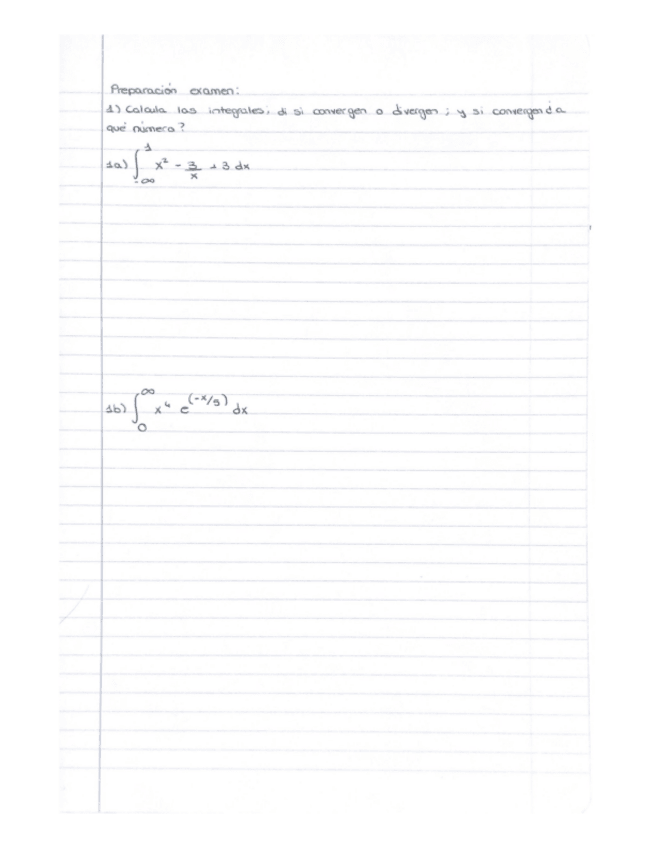 Preparación examen:
1) Calcula las integrales; di si convergen o divergen; y si convergen ¿a
qué número?
1a) ∫_{-∞}^{1} x² - 3/x + 3 dx
1b) ∫_{0}^{∞} x⁴ e^{(-x/5)} dx